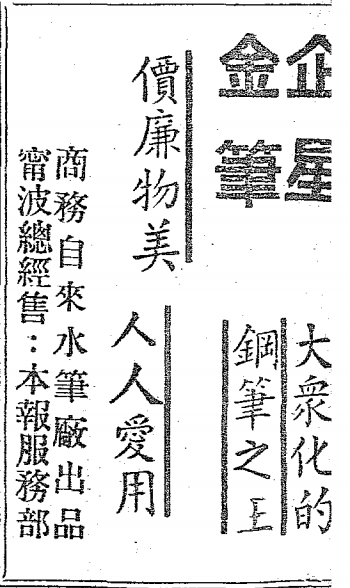 企星
金筆
大衆化的
鋼筆之王
價廉物美
人人愛用
商務自來水筆廠出品
甯波總經售：本報服務部